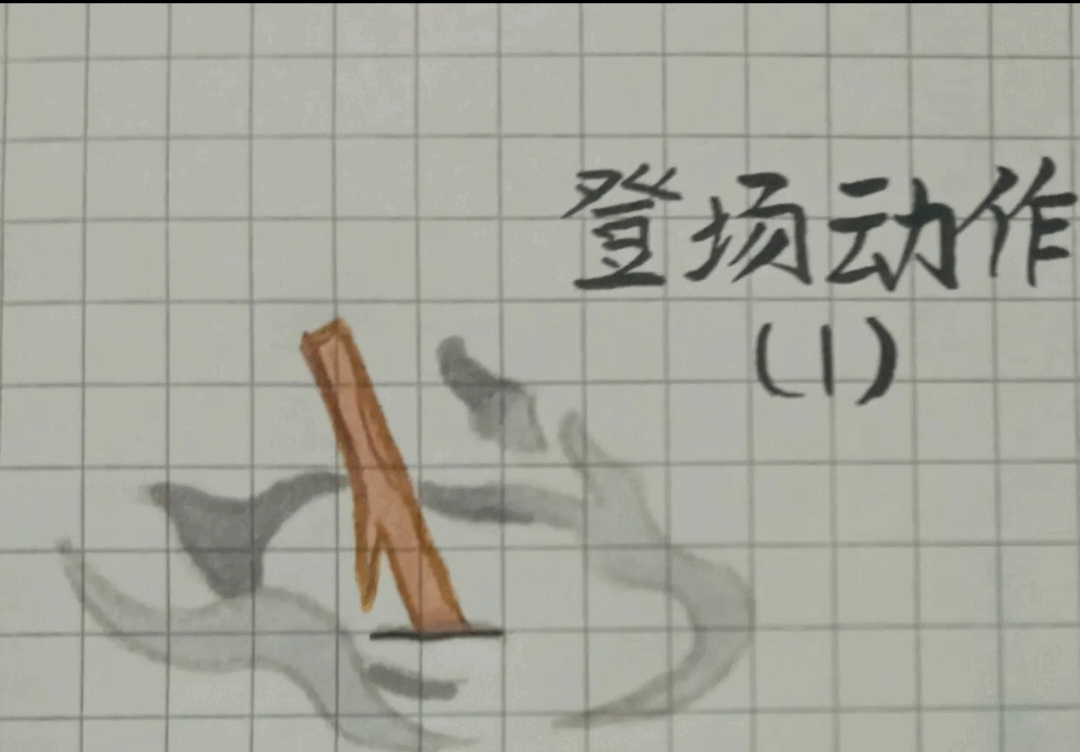 登场动作
(1)